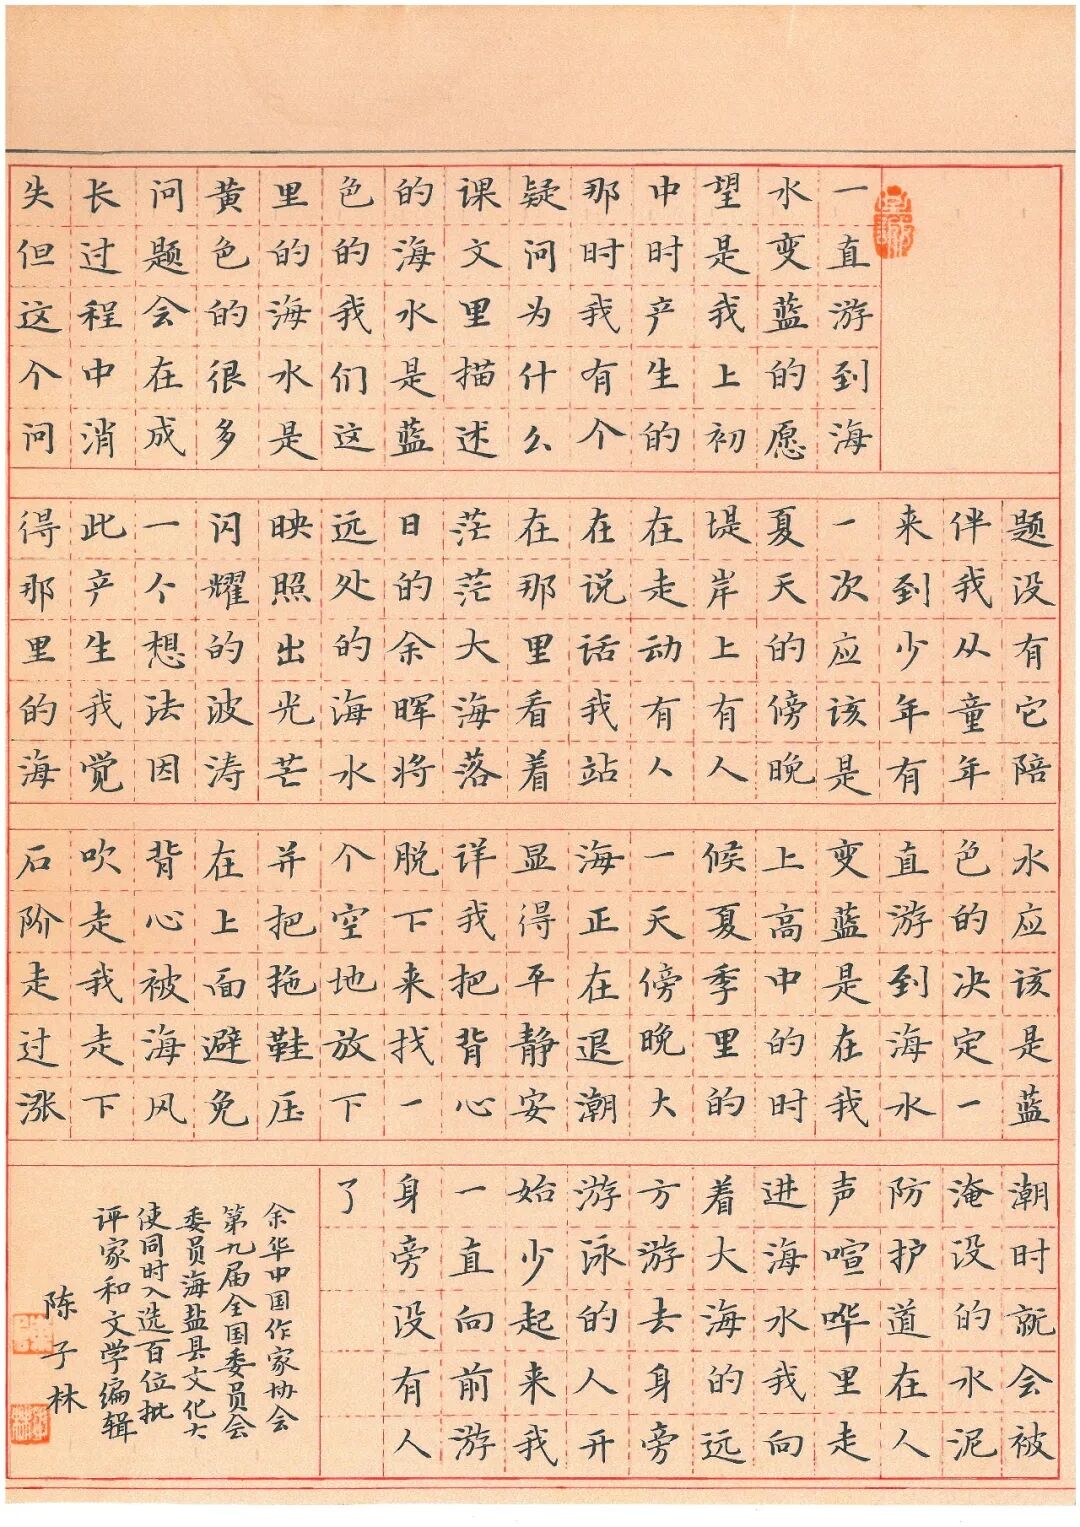 一直游到海
水变蓝的愿
望是我上初
中时产生的
那时我有个
疑问为什么
课文里描述
的海水是蓝
色的我们这
里的海水是
黄色的很多
问题会在成
长过程中消
失但这个问
题没有它陪
伴我从童年
来到少年有
一次应该是
夏天的傍晚
堤岸上有人
在走动有人
在说话我站
在那里看着
茫茫大海落
日的余晖将
远处的海水
映照出光芒
闪耀的波涛
一个想法因
此产生我觉
得那里的海
水应该是蓝
色的决定一
直游到海水
变蓝是在我
上高中的时
候夏季里的
一天傍晚大
海正在退潮
显得平静安
详我把背心
脱下来找一
个空地放下
并把拖鞋压
在上面避免
背心被海风
吹走我走下
石阶走过涨
潮时就会被
淹没的水泥
防护道在人
声喧哗里走
进海水我向
着大海的远
方游去身旁
游泳的人开
始少起来我
一直向前游
身旁没有人
了
余华中国作家协会
第九届全国委员会
委员海盐县文化大
使同时入选百位批
评家和文学编辑
陈子林